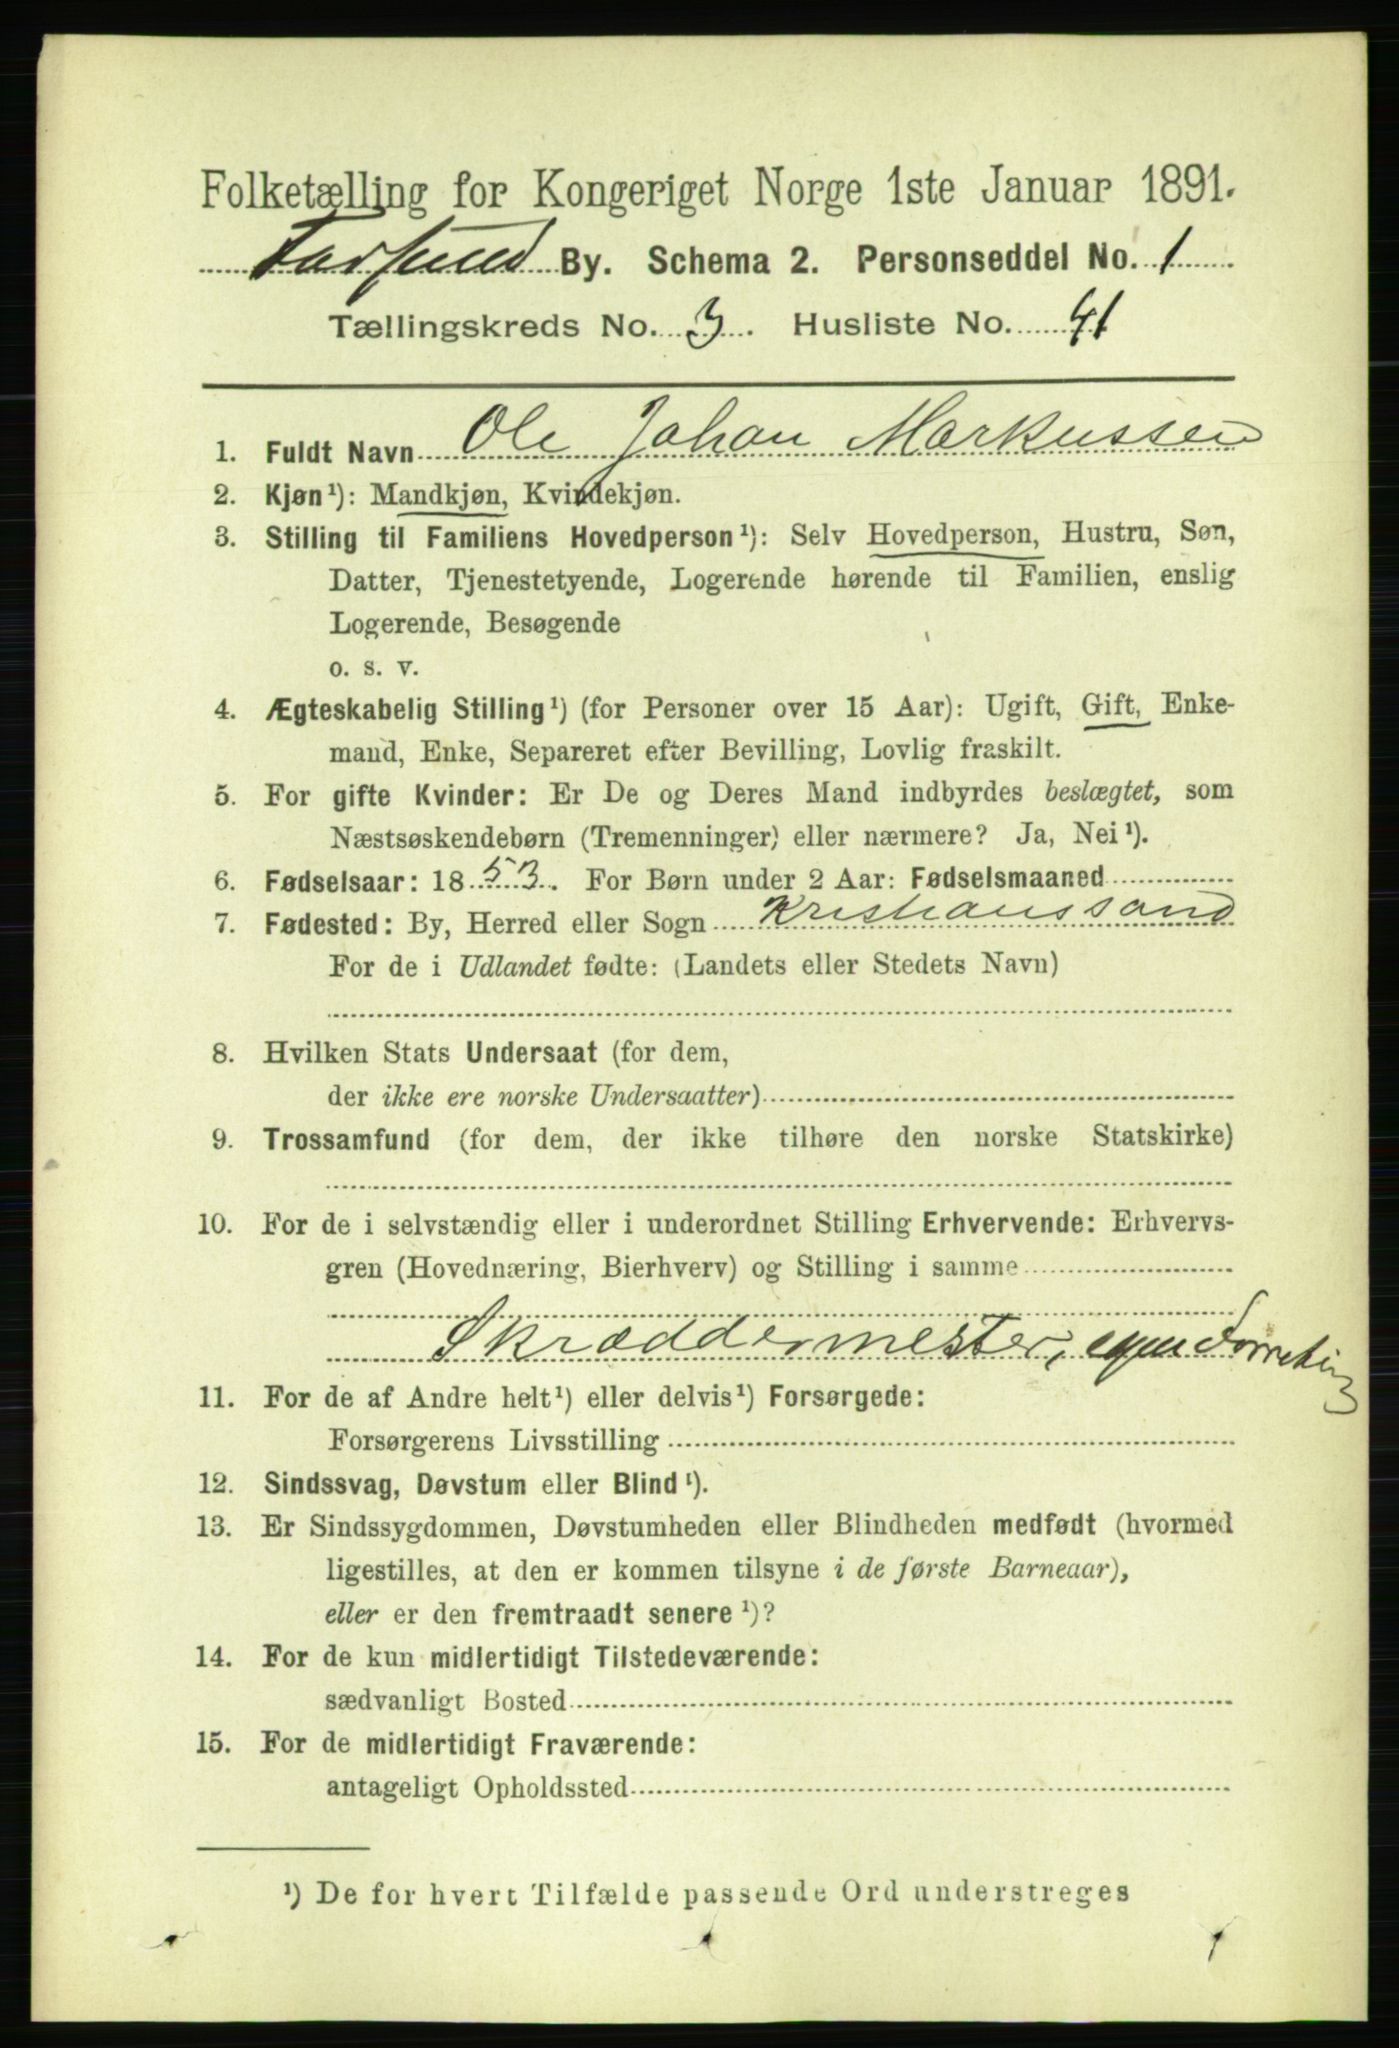 Folketælling for Kongeriget Norge 1ste Januar 1891.
Farsund By. Schema 2. Personseddel No. 1
Tællingskreds No. 3. Husliste No. 41
1. Fuldt Navn Ole Johan Markussen
2. Kjøn¹): Mandkjøn, Kvindekjøn.
3. Stilling til Familiens Hovedperson¹): Selv Hovedperson, Hustru, Søn,
Datter, Tjenestetyende, Logerende hørende til Familien, enslig
Logerende, Besøgende
o. s. v.
4. Ægteskabelig Stilling¹) (for Personer over 15 Aar): Ugift, Gift, Enke-
mand, Enke, Separeret efter Bevilling, Lovlig fraskilt.
5. For gifte Kvinder: Er De og Deres Mand indbyrdes beslægtet, som
Næstsøskendebørn (Tremenninger) eller nærmere? Ja, Nei¹).
6. Fødselsaar: 1853. For Børn under 2 Aar: Fødselsmaaned
7. Fødested: By, Herred eller Sogn Kristianssand
For de i Udlandet fødte: (Landets eller Stedets Navn)
8. Hvilken Stats Undersaat (for dem,
der ikke ere norske Undersaatter)
9. Trossamfund (for dem, der ikke tilhøre den norske Statskirke)
10. For de i selvstændig eller i underordnet Stilling Erhvervende: Erhvervs-
gren (Hovednæring, Bierhverv) og Stilling i samme
Skræddermester, egen Forretning
11. For de af Andre helt¹) eller delvis¹) Forsørgede:
Forsørgerens Livsstilling
12. Sindssvag, Døvstum eller Blind¹).
13. Er Sindssygdommen, Døvstumheden eller Blindheden medfødt (hvormed
ligestilles, at den er kommen tilsyne i de første Barneaar),
eller er den fremtraadt senere¹)?
14. For de kun midlertidigt Tilstedeværende:
sædvanligt Bosted
15. For de midlertidigt Fraværende:
antageligt Opholdssted
¹) De for hvert Tilfælde passende Ord understreges